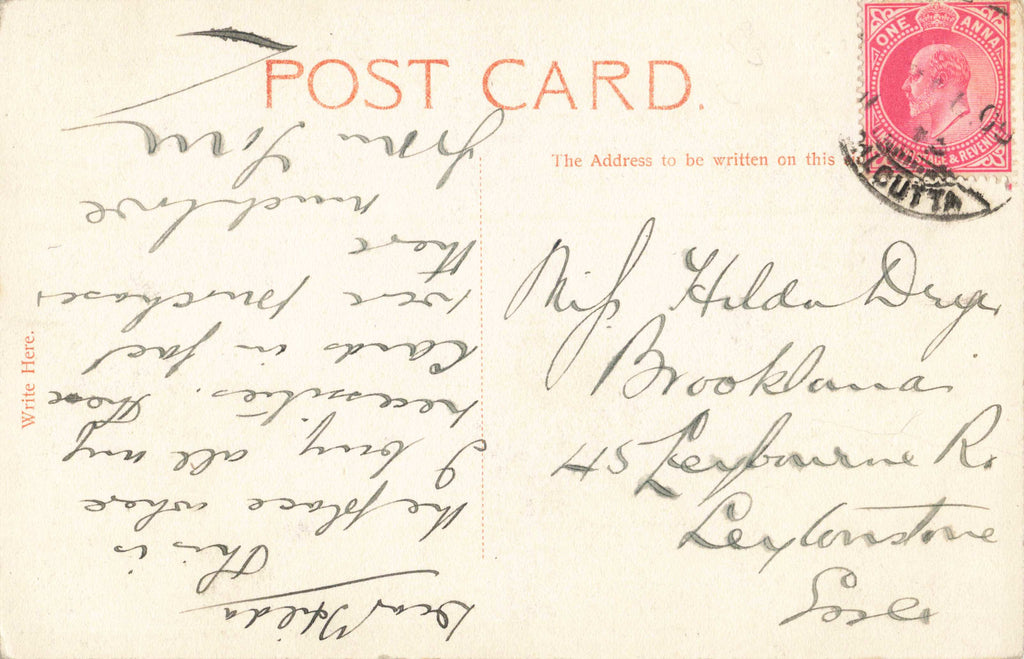 POST CARD.
The Address to be written on this
Write Here.
ONE ANNA
& REVENUE
CALCUTTA
Dear Hilda
This is
the place where
I buy all my
necessities. These
Cards in fact
were purchased
there
much love
from
Miss Hilda
Brooklands
45 Leybourne R.
Leytonstone